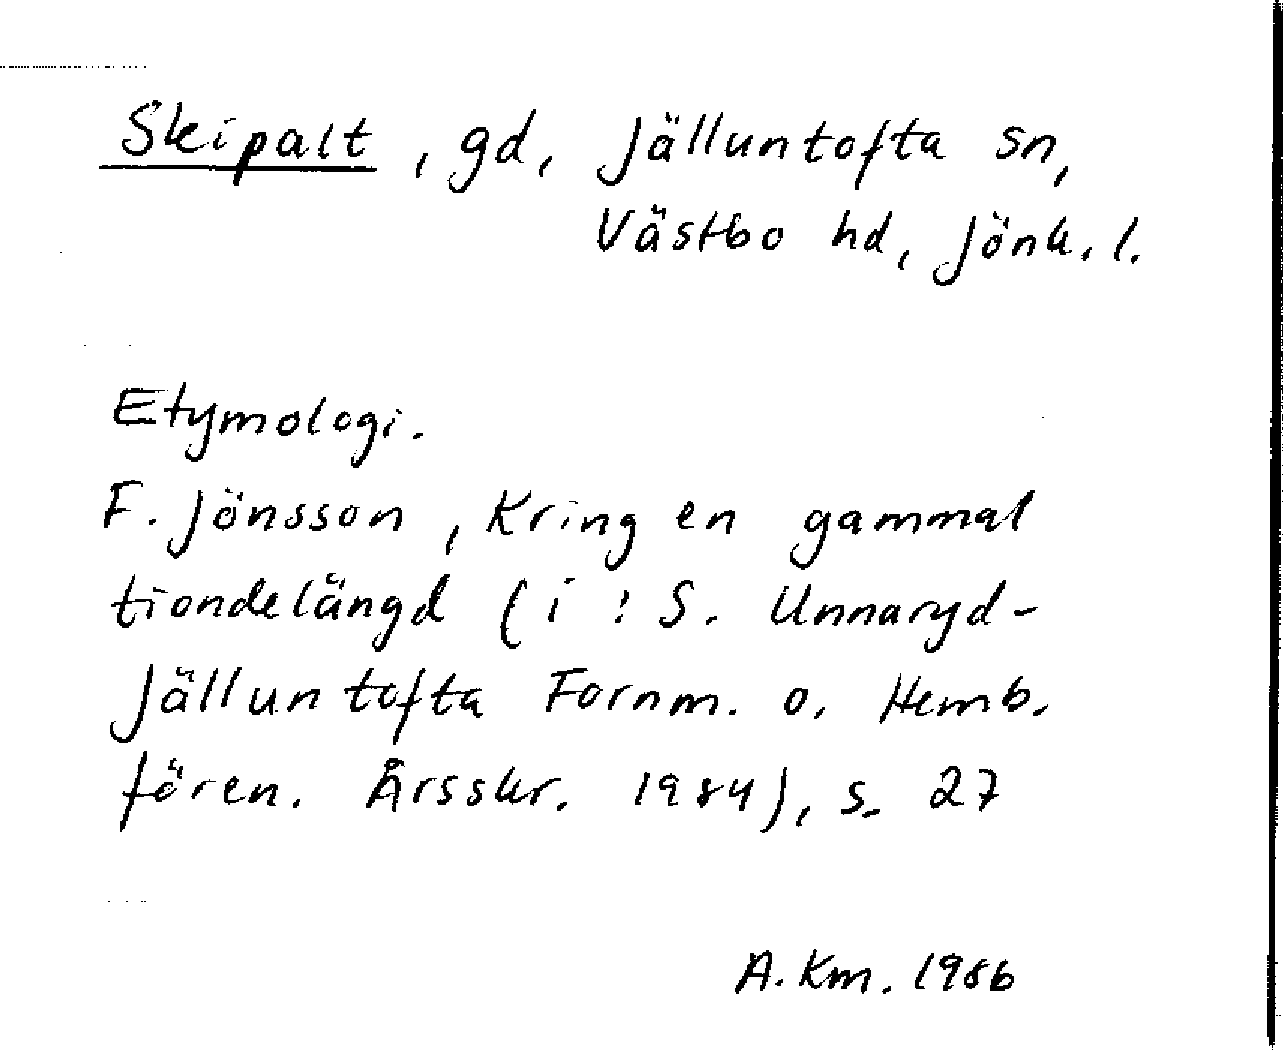 Skipalt, gd, Jälluntofta sn,
Västbo hd, Jönk. l.
Etymologi.
F. Jönsson, Kring en gammal
tiondelängd (i: S. Unnaryd-
Jälluntofta Fornm. o. Hemb.
fören. Årsskr. 1984), s. 27
A. Km. 1986